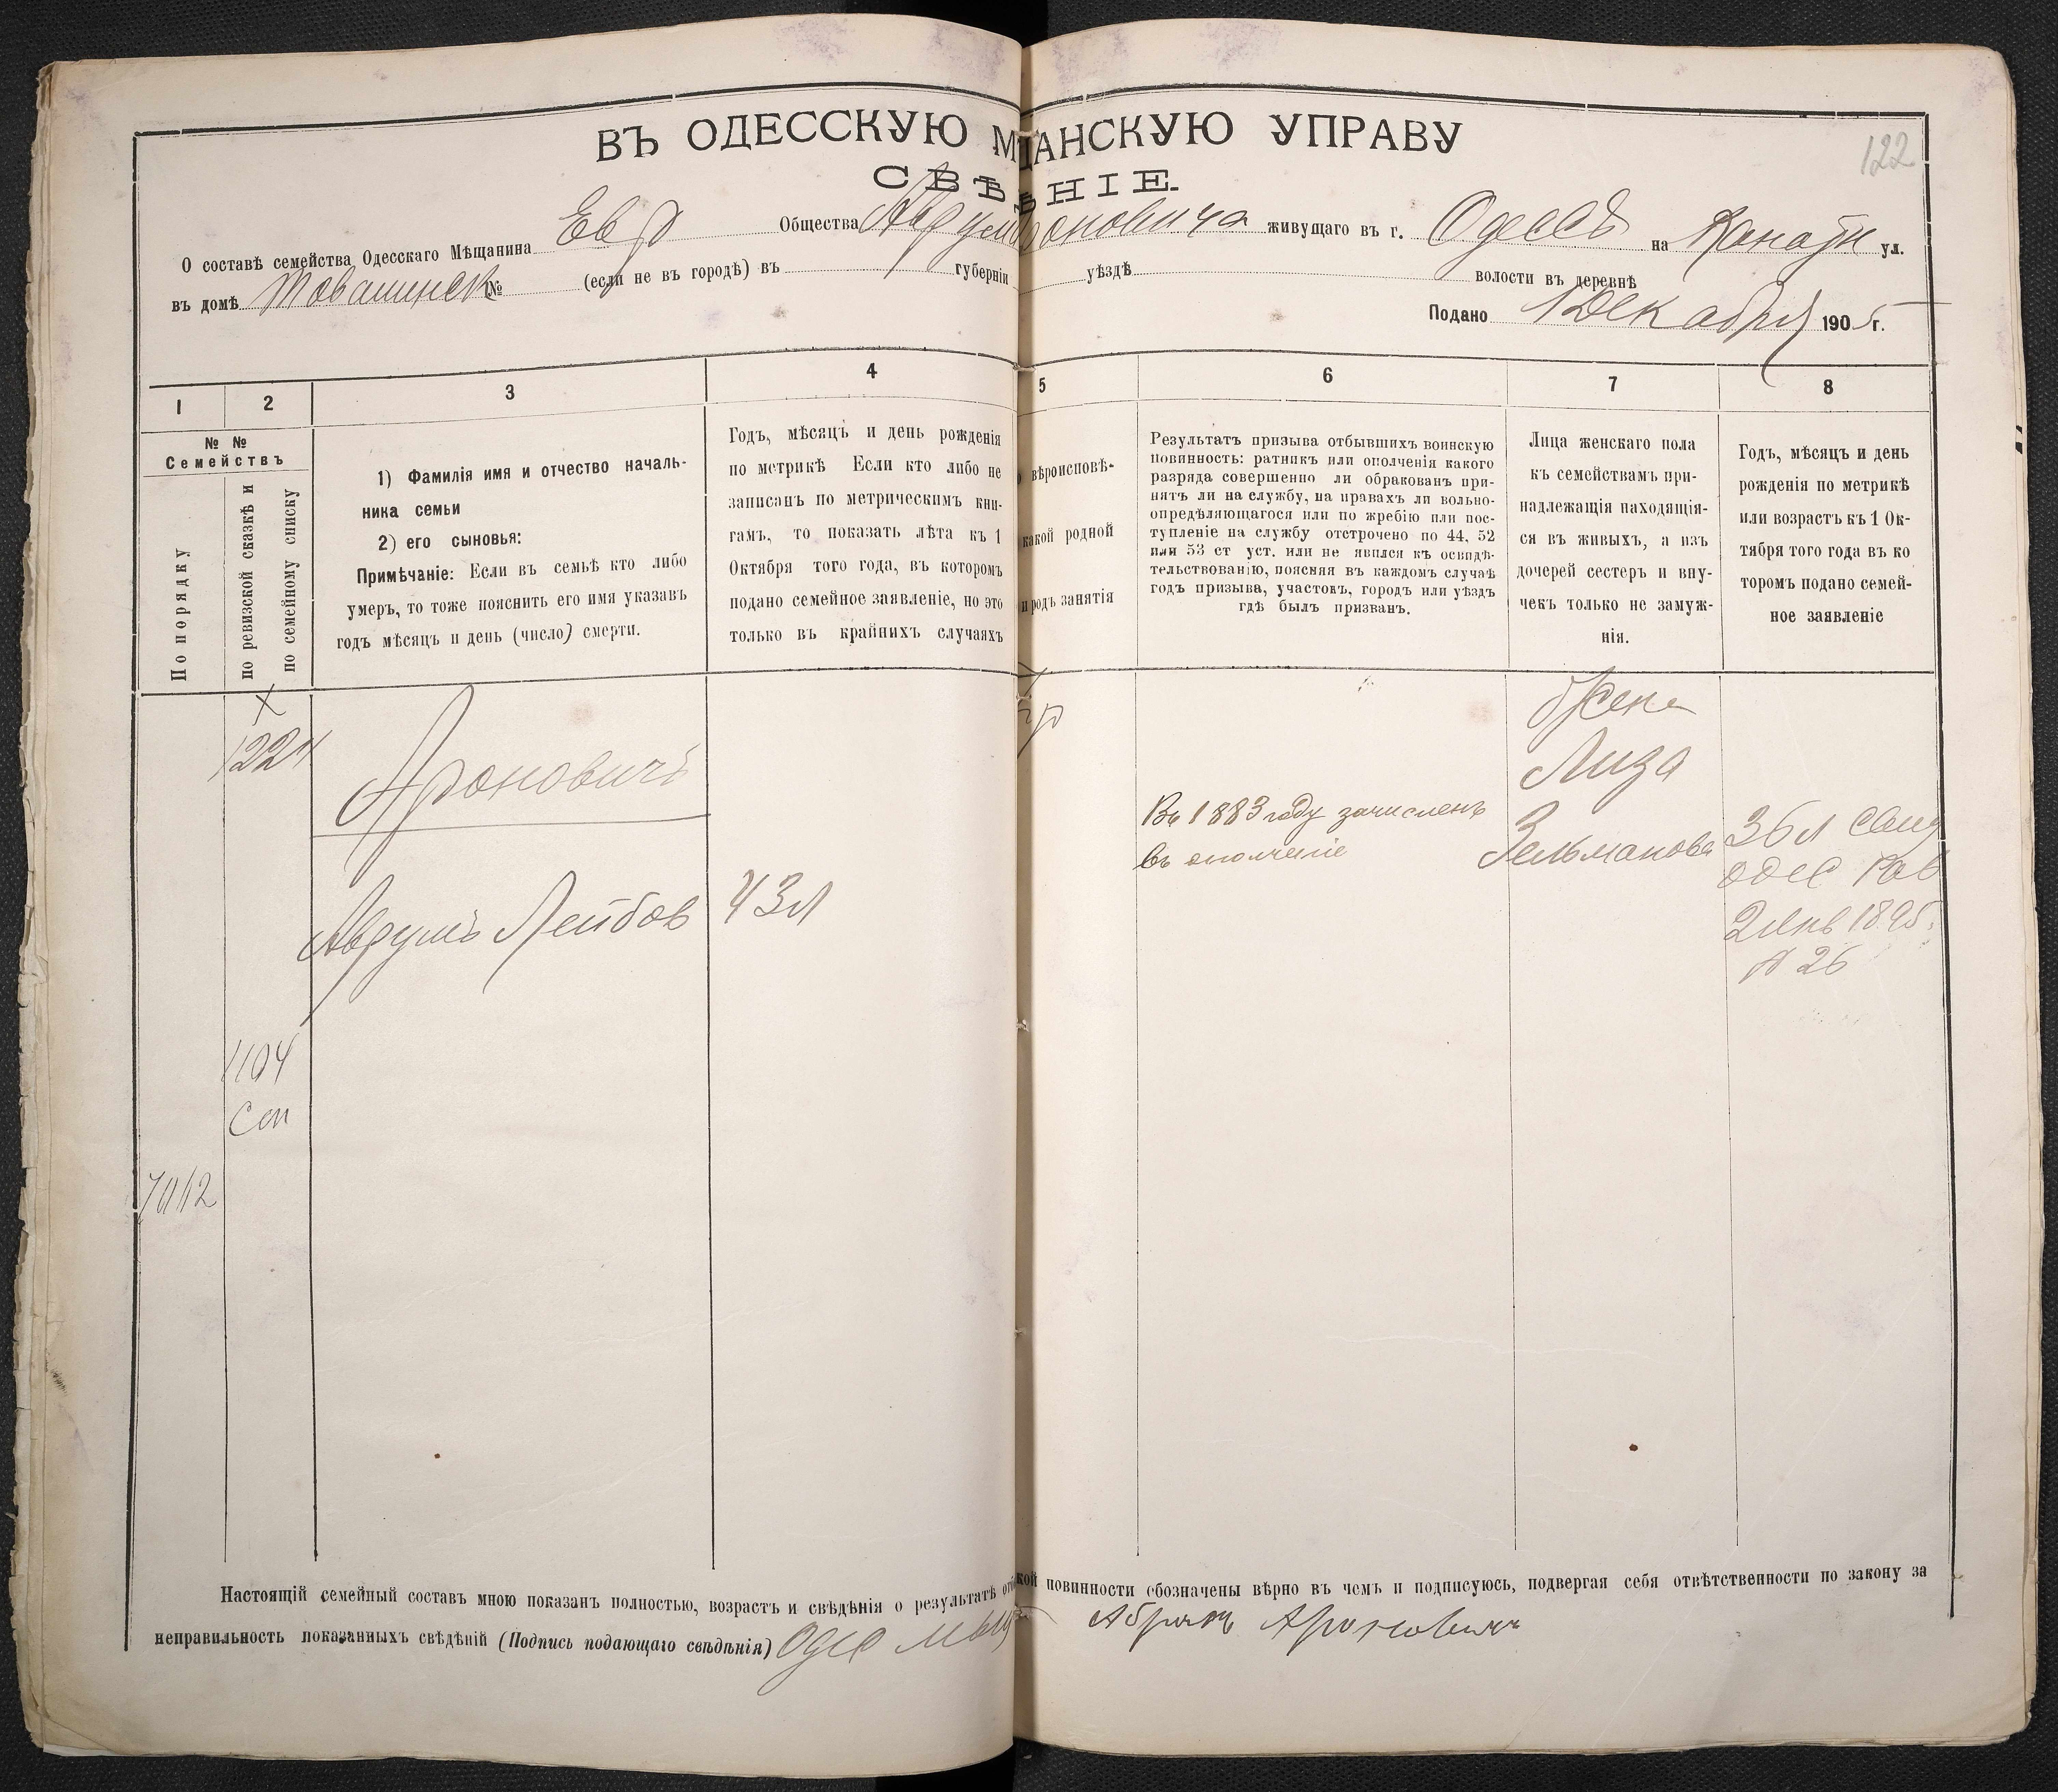 122
ВЪ ОДЕССКУЮ М ЩАНСКУЮ УПРАВУ
СВѢ НІЕ.
О составѣ семейства Одесскаго Мѣщанина Евр Общества живущаго въ г. Одессѣ на Канатн ул.
въ домѣ № (если не въ городѣ) въ губерніи уѣздѣ волости въ деревнѣ
Подано 1 Декабря 1905 г.
1 2 3 4 5 6 7 8
№ №
Семействъ
По порядку
по ревизской сказкѣ и
по семейному списку
1) Фамилія имя и отчество началь-
ника семьи
2) его сыновья:
Примѣчаніе: Если въ семьѣ кто либо
умеръ, то тоже пояснить его имя указавъ
годъ мѣсяцъ и день (число) смерти.
Годъ, мѣсяцъ и день рожденія
по метрикѣ Если кто либо не
записанъ по метрическимъ кни-
гамъ, то показать лѣта къ 1
Октября того года, въ которомъ
подано семейное заявленіе, но это
только въ крайнихъ случаяхъ
вѣроисповѣ-
какой родной
и родъ занятія
Результатъ призыва отбывшихъ воинскую
повинность: ратникъ или ополченія какого
разряда совершенно ли обракованъ при-
нятъ ли на службу, на правахъ ли вольно-
опредѣляющагося или по жребію или пос-
тупленіе на службу отстрочено по 44, 52
или 53 ст уст. или не явился къ освидѣ-
тельствованію, поясняя въ каждомъ случаѣ
годъ призыва, участокъ, городъ или уѣздъ
гдѣ былъ призванъ.
Лица женскаго пола
къ семействамъ при-
надлежащія находящія-
ся въ живыхъ, а изъ
дочерей сестеръ и вну-
чекъ только не замуж-
нія.
Годъ, мѣсяцъ и день
рожденія по метрикѣ
или возрастъ къ 1 Ок-
тября того года въ ко
торомъ подано семей-
ное заявленіе
Ароновичъ
Аврумъ Лейбов
43 л
1104
сп
7012
Въ 1883 году зачисленъ
въ ополченіе
Жена
Лиза
Зельманова
36 л
одес рав
1895
№ 26
Настоящій семейный составъ мною показанъ полностью, возрастъ и свѣдѣнія о результатѣ кой повинности обозначены вѣрно въ чемъ и подписуюсь, подвергая себя отвѣтственности по закону за
неправильность показанныхъ свѣдѣній (Подпись подающаго свѣдѣнія) Одес Абрамъ Ароновичъ